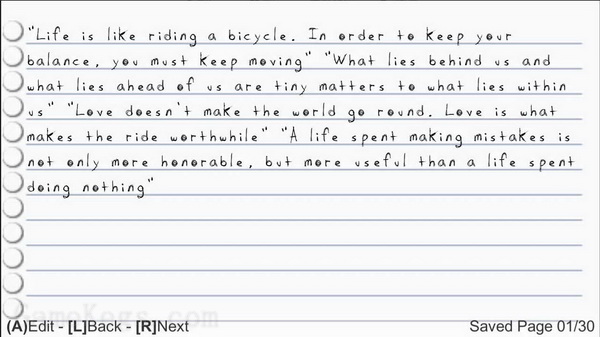 "Life is like riding a bicycle. In order to keep your
balance, you must keep moving" "What lies behind us and
what lies ahead of us are tiny matters to what lies within
us" "Love doesn't make the world go round. Love is what
makes the ride worthwhile" "A life spent making mistakes is
not only more honorable, but more useful than a life spent
doing nothing"
GameKegs.com
(A)Edit - [L]Back - [R]Next Saved Page 01/30